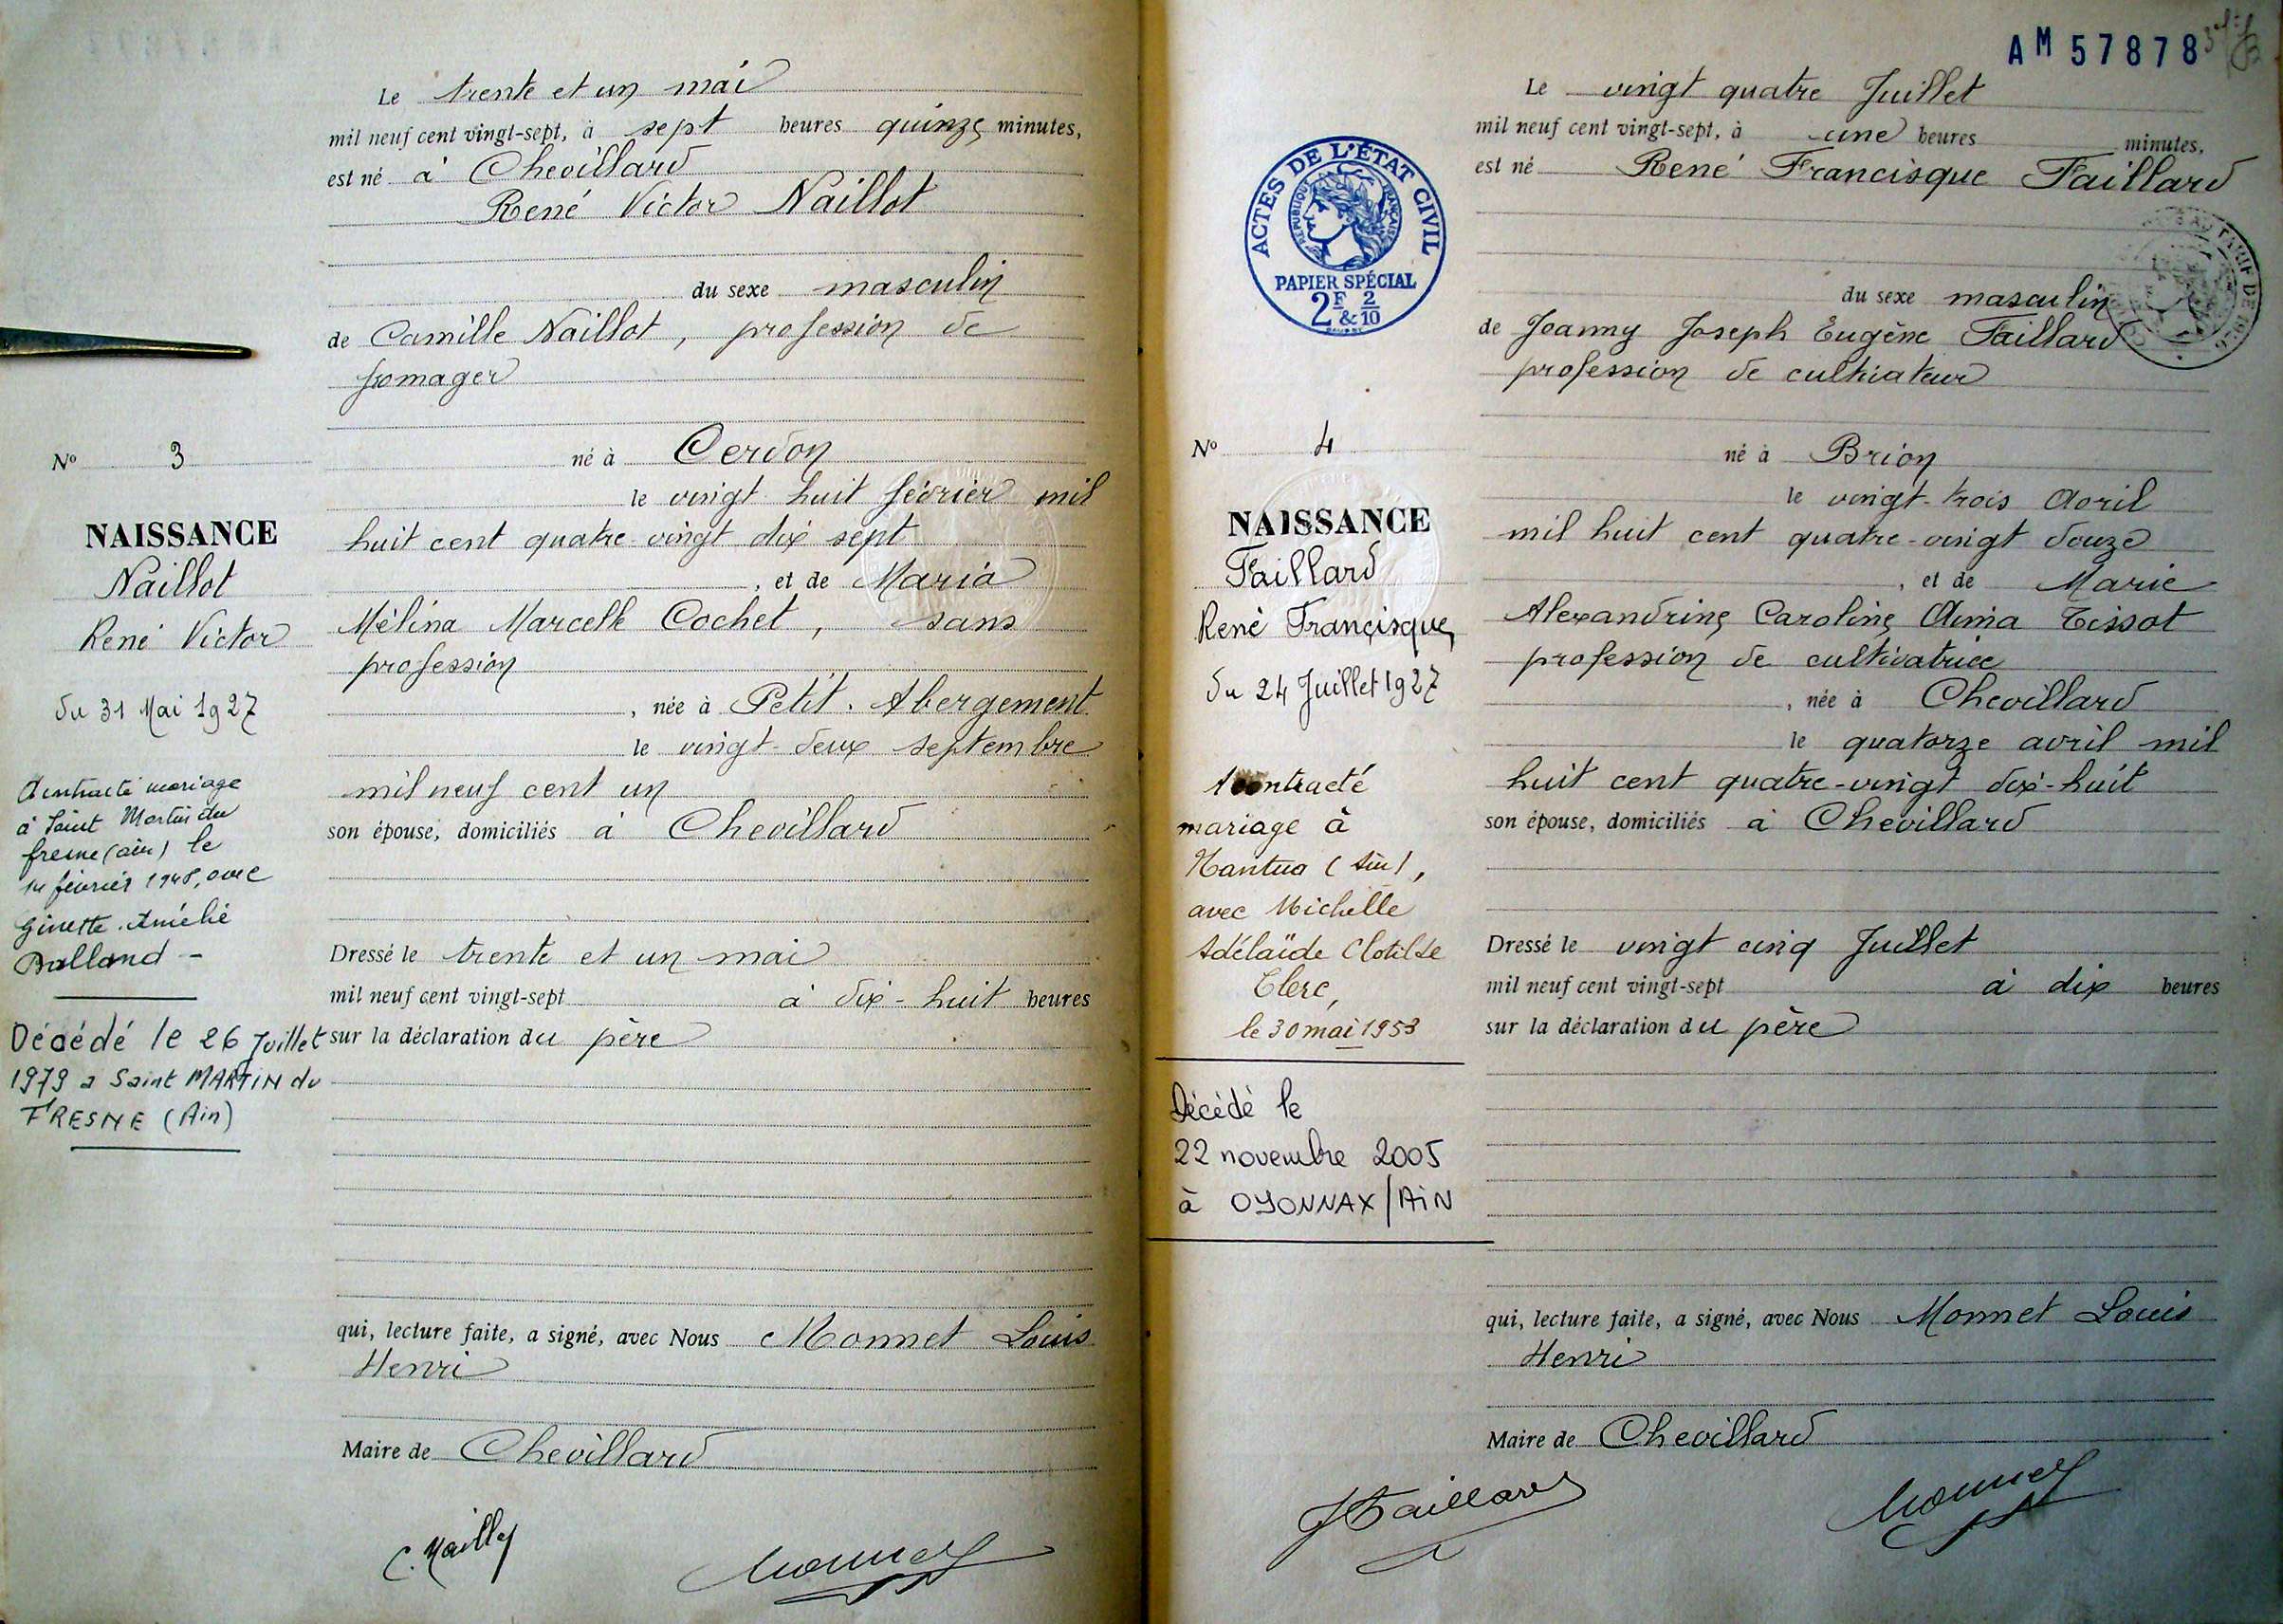 Le trente et un mai
mil neuf cent vingt-sept, à sept heures quinze minutes,
est né à Chevillard
René Victor Naillot
du sexe masculin
de Camille Naillot, profession de
fromager
né à Cerdon
le vingt huit février mil
huit cent quatre-vingt dix sept
, et de Maria
Mélina Marcelle Cochet, sans
profession
, née à Petit. Abergement
le vingt-deux septembre
mil neuf cent un
son épouse, domiciliés à Chevillard
Dressé le trente et un mai
mil neuf cent vingt-sept à dix-huit heures
sur la déclaration du père
qui, lecture faite, a signé, avec Nous Monnet Louis
Henri
Maire de Chevillard
N° 3
NAISSANCE
Naillot
René Victor
du 31 Mai 1927
A contracté mariage
à Saint Martin du
fresne (ain) le
14 février 1948, avec
Ginette Amélie
Balland -
Décédé le 26 Juillet
1979 a Saint MARTIN du
FRESNE (Ain)
AM 57878
ACTES DE L'ÉTAT CIVIL
RÉPUBLIQUE FRANÇAISE
PAPIER SPÉCIAL
2F & 2/10
Le vingt quatre Juillet
mil neuf cent vingt-sept, à une heures minutes,
est né René Francisque Faillard
du sexe masculin
de Joanny Joseph Eugène Faillard
profession de cultivateur
né à Brion
le vingt-trois Avril
mil huit cent quatre-vingt douze
, et de Marie
Alexandrine Caroline Aima Tissot
profession de cultivatrice
, née à Chevillard
le quatorze avril mil
huit cent quatre-vingt dix-huit
son épouse, domiciliés à Chevillard
Dressé le vingt cinq Juillet
mil neuf cent vingt-sept à dix heures
sur la déclaration du père
qui, lecture faite, a signé, avec Nous Monnet Louis
Henri
Maire de Chevillard
N° 4
NAISSANCE
Faillard
René Françisque
du 24 Juillet 1927
A contracté
mariage à
Nantua (Ain),
avec Michelle
Adélaïde Clotilde
Clerc,
le 30 mai 1953
Décédé le
22 novembre 2005
à OYONNAX/AiN
C. Naillot
Monnet
J Faillard
Monnet